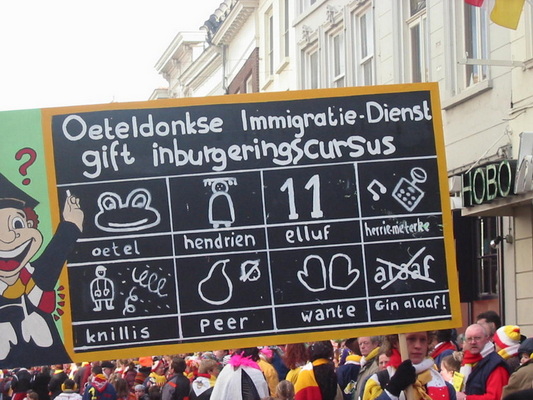 Oeteldonkse Immigratie-Dienst
gift inburgeringscursus
?
11
oetel hendrien elluf herrie-meterke
alaaf
knillis peer wante Gin alaaf!
HOBO